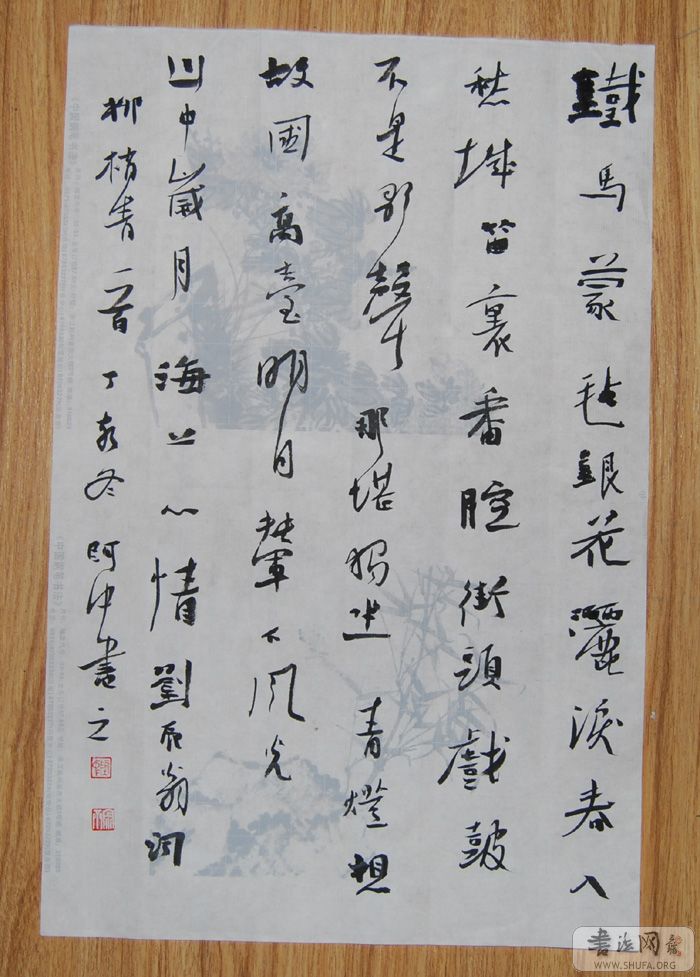 鐵馬蒙毡銀花灑淚春入
愁城笛裏番腔街頭戲鼓
不是歌聲那堪獨坐青燈想
故國高臺明月輦下風光
山中歲月海上心情劉辰翁詞
柳梢青一首丁亥冬阿中書之
書法网
WWW.SHUFA.ORG